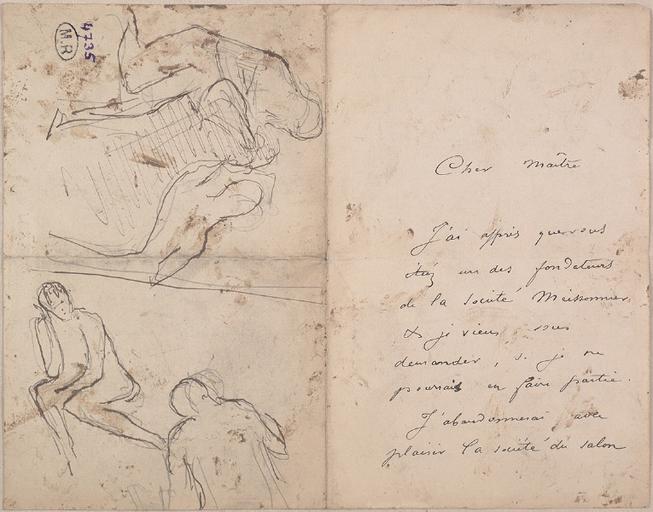 4735
M.R
Cher Maître
J'ai appris que vous
étiez un des fondateurs
de la Société Meissonnier
& je viens vous
demander, si je ne
pourrais en faire partie.
J'abandonnerai avec
plaisir la société du salon